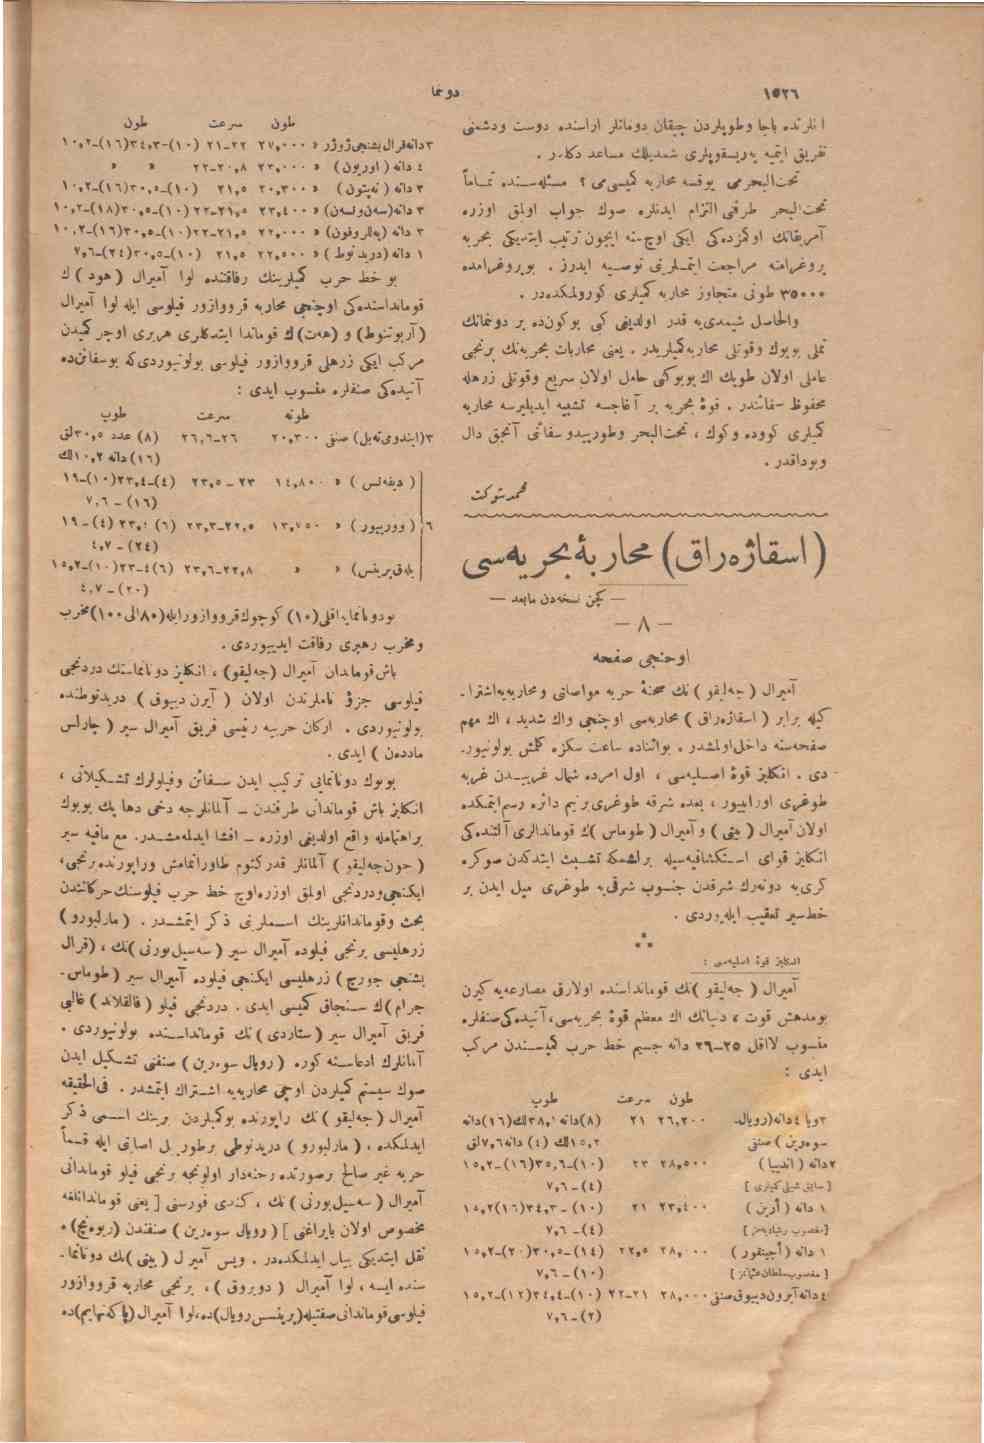 ١٥٢٦
دونما
انلرنده باجا وطوپلردن چیقان دومانلر اراسنده دوست ودشمنی
تفریق ایتمیه پریسقوپلری شمدیلك مساعد دكلدر .
تحت‌البحرمی یوقسه محاربه كمیسی‌می ؟ مسئله‌سنده تماماً
تحت‌البحر طرفنی التزام ایدنلره صوك جواب اولمق اوزره
آمریقانك اوكمزده‌كی ایكی اوچ سنه ایچون ترتیب ایتدیكی بحریه
پروغرامنه مراجعت ایتملرینی توصیه ایدرز . بوپروغرامده
٣٥٠٠٠ طونی متجاوز محاربه كمیلری كورولمكده‌در .
والحاصل شیمدی‌یه قدر اولدیغی كبی بوكون‌ده بر دونمانك
تملی بویوك وقوتلی محاربه كمیلریدر . یعنی محاربات بحریه‌نك برنجی
عاملی اولان طوپك اك بویوكنی حامل اولان سریع وقوتلی زرهله
محفوظ سفائندر . قوهٔ بحریه بر آغاجه تشبیه ایدیلیرسه محاربه
كمیلری كووده وكوك ، تحت‌البحر وطورپیدو سفائنی آنجق دال
وبوداقدر .
محمد شوكت
(اسقاژه‌راق) محاربهٔ بحریه‌سی
— كچن نسخه‌دن مابعد —
— ٨ —
اوچنجی صفحه
آمیرال ( جه‌لیقو ) نك صحنهٔ حربه مواصلتی ومحاربه‌یه اشترا-
كیله برابر ( اسقاژه‌راق ) محاربه‌سی اوچنجی واك شدید ، اك مهم
صفحه‌سنه داخل اولمشدر . بواثناده ساعت سكزه كلمش بولونیور-
دی . انكلیز قوهٔ اصلیه‌سی ، اول امرده شمال غربیدن غربه
طوغری اورابیور ، بعده شرقه طوغری نیم دائره رسم ایتمكده
اولان آمیرال ( بیتی ) و آمیرال ( طوماس ) ك قوماندالری آلتنده‌كی
انكلیز قوای استكشافیه‌سیله برلشمكه تشبث ایتدكدن صوكره
كری‌یه دونه‌رك شرقدن جنوب شرقی‌یه طوغری میل ایدن بر
خط سیر تعقیب ایله‌یوردی .
⁂
انكلیز قوهٔ اصلیه‌سی :
آمیرال ( جه‌لیقو ) نك قومانداسنده اولارق مصارعه‌یه كیرن
بومدهش قوت ، دنیانك اك معظم قوهٔ بحریه‌سی، آتیده‌كی صنفلره
منسوب لااقل ٢٥–٢٦ دانه جسیم خط حرب كمیسندن مركب
ایدی :
طون سرعت طوپ
٣ ویا ٤ دانه (رویال- ٢٦,٢٠٠ ٢١ (٨) دانه ٣٨,١ لك (١٦) دانه
سوه‌رین ) صنفی ١٥,٢ لك (٤) دانه ٧,٦ لق
٢ دانه ( اندیپا ) ٢٨,٥٠٠ ٢٣ (١٠)–٣٥,٦ (١٦)–١٥,٢
[ سابق شیلی كمیلری ] (٤)–٧,٦
١ دانه ( أژین ) ٢٣,٤٠٠ ٢١ (١٠)–٣٤,٣ (١٦) ١٥,٢
[ مغصوب رشادیه‌مز ] (٤)–٧,٦
١ دانه ( أجینقور ) ٢٨,٠٠٠ ٢٢,٥ (١٤)–٣٠,٥ (٢٠)–١٥,٢
[ مغصوب سلطان عثمانمز ] (١٠)–٧,٦
٤ دانه آیرون دیوق صنفی ٢٨,٠٠٠ ٢١–٢٢ (١٠)–٣٤,٤ (١٢)–١٥,٢
(٢)–٧,٦
طون سرعت طون
٣ دانه قرال بشنجی ژورژ » ٢٧,٠٠٠ ٢٢–٢١ (١٠)–٣٤,٣ (١٦)–١٠,٢
٤ دانه ( اوریون ) » ٢٣,٠٠٠ ٢٠,٨–٢٢ » »
٣ دانه ( نه‌پتون ) » ٢٠,٣٠٠ ٢١,٥ (١٠)–٣٠,٥ (١٦)–١٠,٢
٣ دانه (سه‌ن ونسه‌ن) » ٢٣,٤٠٠ ٢١,٥–٢٢ (١٠)–٣٠,٥ (١٨)–١٠,٢
٣ دانه (په‌للروفون) » ٢٢,٠٠٠ ٢١,٥–٢٢ (١٠)–٣٠,٥ (١٦)–١٠,٢
١ دانه (دریدنوط) » ٢٢,٥٠٠ ٢١,٥ (١٠)–٣٠,٥ (٢٤)–٧,٦
بو خط حرب كمیلرینك رفاقتنده لوا آمیرال ( هود ) ك
قومانداسنده‌كی اوچنجی محاربه قرووازور فیلوسی ایله لوا آمیرال
(آربوتنوط) و (هه‌ت) ك قوماندا ایتدكلری هربری اوچر كمیدن
مركب ایكی زرهلی قرووازور فیلوسی بولونیوردی كه بوسفائن‌ده
آتیده‌كی صنفلره منسوب ایدی :
طونه سرعت طوپ
٣ (ایندومی‌ته‌بل) صنفی ٢٠,٣٠٠ ٢٦–٢٦,٦ (٨) عدد ٣٠,٥ لق
(١٦) دانه ١٠,٢ لك
( دیفه‌نس ) » ١٤,٨٠٠ ٢٣–٢٣,٥ (٤)–٢٣,٤ (١٠)–١٩
(١٦)–٧,٦
٦ ( ووریور ) » ١٣,٧٥٠ ٢٢,٥–٢٣,٣ (٦) ٢٣,٤ (٤)–١٩
(٢٤)–٤,٧
( بله‌ق پرینس ) » » ٢٢,٨–٢٣,٦ (٦) ٢٣,٤ (١٠)–١٥,٢
(٢٠)–٤,٧
بودونانمایه اقلی (١٠) كوچوك قرووازور ایله (٨٠ الی ١٠٠) مخرب
ومخرب رهبری رفاقت ایدییوردی .
باش قوماندان آمیرال (جه‌لیقو) ، انكلیز دونانماسنك دردنجی
فیلوسی جزؤ تاملرندن اولان ( آیرن دیوق ) دریدنوطنده
بولونیوردی . اركان حربیه رئیسی فریق آمیرال سیر ( چارلس
مادده‌ن ) ایدی .
بویوك دونانمایی تركیب ایدن سفائن وفیلولرك تشكیلاتی ،
انكلیز باش قوماندانی طرفندن – آلمانلرجه دخی دها پك بویوك
براهتمامله واقع اولدیغی اوزره – افشا ایدلمه‌مشدر. مع مافیه سیر
( جون جه‌لیقو ) آلمانلر قدر كتوم طاورانمامش وراپورنده برنجی،
ایكنجی ودردنجی اولمق اوزره اوچ خط حرب فیلوسنك حركاتندن
بحث وقوماندانلرینك اسملرنی ذكر ایتمشدر . ( مارلبورو )
زرهلیسی برنجی فیلوده آمیرال سیر ( سه‌سیل بورنی ) نك ، ( قرال
بشنجی جورج ) زرهلیسی ایكنجی فیلوده آمیرال سیر ( طوماس-
جرام ) ك سنجاق كمیسی ایدی . دردنجی فیلو ( فالقلاند ) غالبی
فریق آمیرال سیر ( ستاردی ) نك قومانداسنده بولونیوردی .
آلمانلرك ادعاسنه كوره ( رویال سوه‌رین ) صنفنی تشكیل ایدن
صوك سیستم كمیلردن اوچی محاربه‌یه اشتراك ایتمشدر . فی‌الحقیقه
آمیرال (جه‌لیقو) نك راپورنده بوكمیلردن برینك اسمی ذكر
ایدلمكده ، ( مارلبورو ) دریدنوطی برطورپیل اصابتی ایله قسماً
حربه غیر صالح برصورتده رخنه‌دار اولونجه برنجی فیلو قوماندانی
آمیرال ( سه‌سیل بورنی ) نك ، كندی فورسنی [ یعنی قوماندانلغه
مخصوص اولان بایراغنی ] ( رویال سوه‌رین ) صنفندن (ریوه‌نج) ه
نقل ایتدیكی بیان ایدلمكده‌در . ویس آمیرال ( بیتی ) نك دونانما-
سنده ایسه ، لوا آمیرال ( دوبروق ) ، برنجی محاربه قرووازور
فیلوسی قوماندانی صفتیله (پرینسس رویال) ده، لوا آمیرال (پاكه‌نهایم) ده